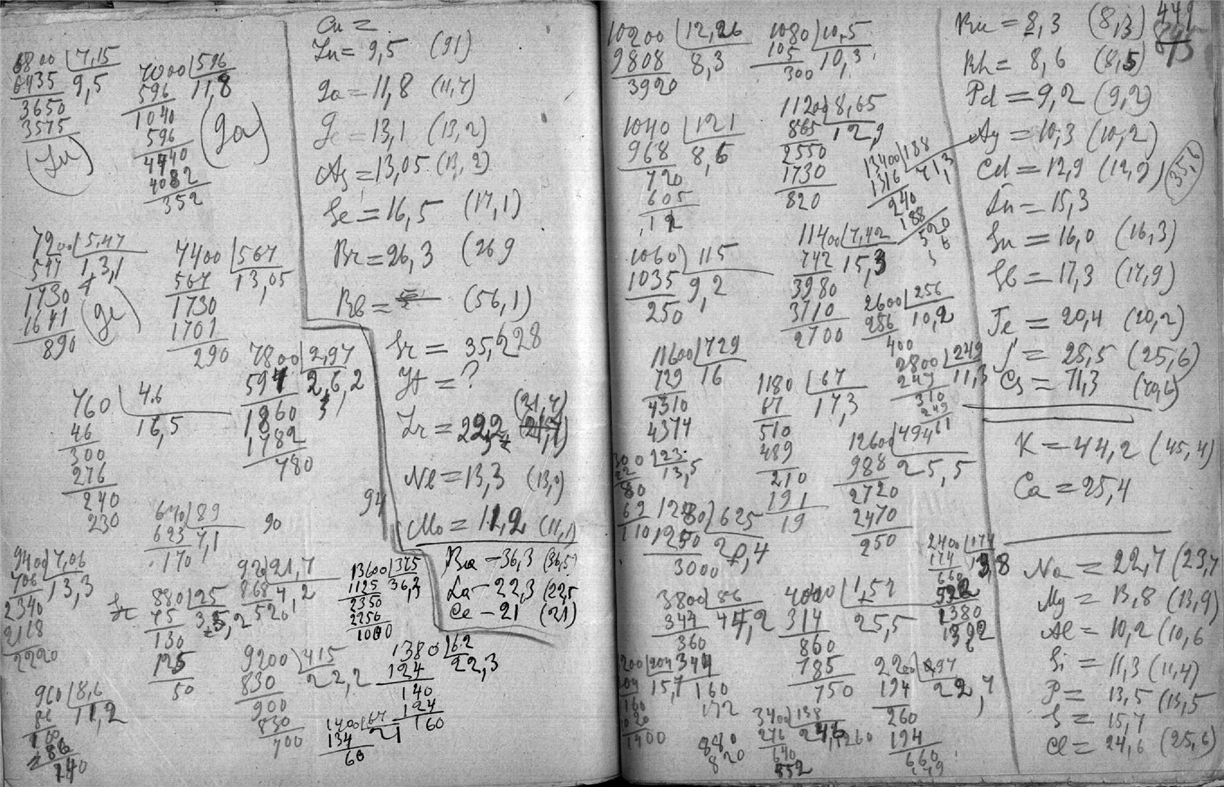 Cu =
Zn = 9,5 (91)
ga = 11,8 (11,7)
ge = 13,1 (13,2)
As = 13,05 (13,2)
Se = 16,5 (17,1)
Br = 26,3 (26,9
Rb = (56,1)
Sr = 35,2
Yt = ?
(21,7)
Zr = 22,2
Nb = 13,3 (13,9)
Mo = 11,2 (11,1)
Ba – 36,3 (36,5)
La – 22,3 (22,5
Ce – 21 (21)
6800 7,15
6435 9,5
3650
3575
(Zn)
7000 596
596 11,8
1040
596
4440
4082
352
(ga)
7200 5,47
547 13,1
1730
1641
890
(ge)
7400 567
567 13,05
1730
1701
290
7800 2,97
594 2,6,2
1860
1782
780
760 4.6
46 16,5
300
276
240
230
640 89
623 7,1
170
90
94
9400 7,06
706 13,3
2340
2118
2220
880 25
75 35,2
130
125
50
920 21,7
868 4,2
520
13600 375
1125 36,2
2350
2250
1000
9200 415
830 22,2
900
830
700
1380 62
124 22,3
140
124
160
1400 67
134 21
60
960 8,6
86 11,2
100
86
140
10200 12,26
9808 8,3
3920
1080 10,5
105 10,3
300
1040 121
968 8,6
720
605
1120 8,65
865 12,9
2550
1730
820
13400 188
1316 71,3
240
188
520
1060 115
1035 9,2
250
11400 7,42
742 15,3
3980
3710
2700
2600 256
256 10,2
400
11600 729
729 16
4310
4374
2800 249
249 11,3
310
249
61
1180 67
67 17,3
510
489
210
191
19
12600 494
988 25,5
2720
2470
250
12800 625
1250 20,4
3000
3800 86
344 44,2
360
344
160
172
4000 1,57
314 25,5
860
785
750
2400 174
174 13,8
660
522
1380
2200 97
194 22,7
260
194
660
3400 138
276 24,6
640
552
880
820
Ru = 8,3 (8,3)
Rh = 8,6 (8,5)
Pd = 9,2 (9,2)
Ag = 10,3 (10,2)
Cd = 12,9 (12,9)
(35,6)
In = 15,3
Sn = 16,0 (16,3)
Sb = 17,3 (17,9)
Te = 20,4 (20,2)
J = 25,5 (25,6)
Cs = 71,3 (70,6)
K = 44,2 (45,4)
Ca = 25,4
Na = 22,7 (23,7
Mg = 13,8 (13,9)
Al = 10,2 (10,6
Si = 11,3 (11,4)
P = 13,5 (13,5
S = 15,7
Cl = 24,6 (25,6)